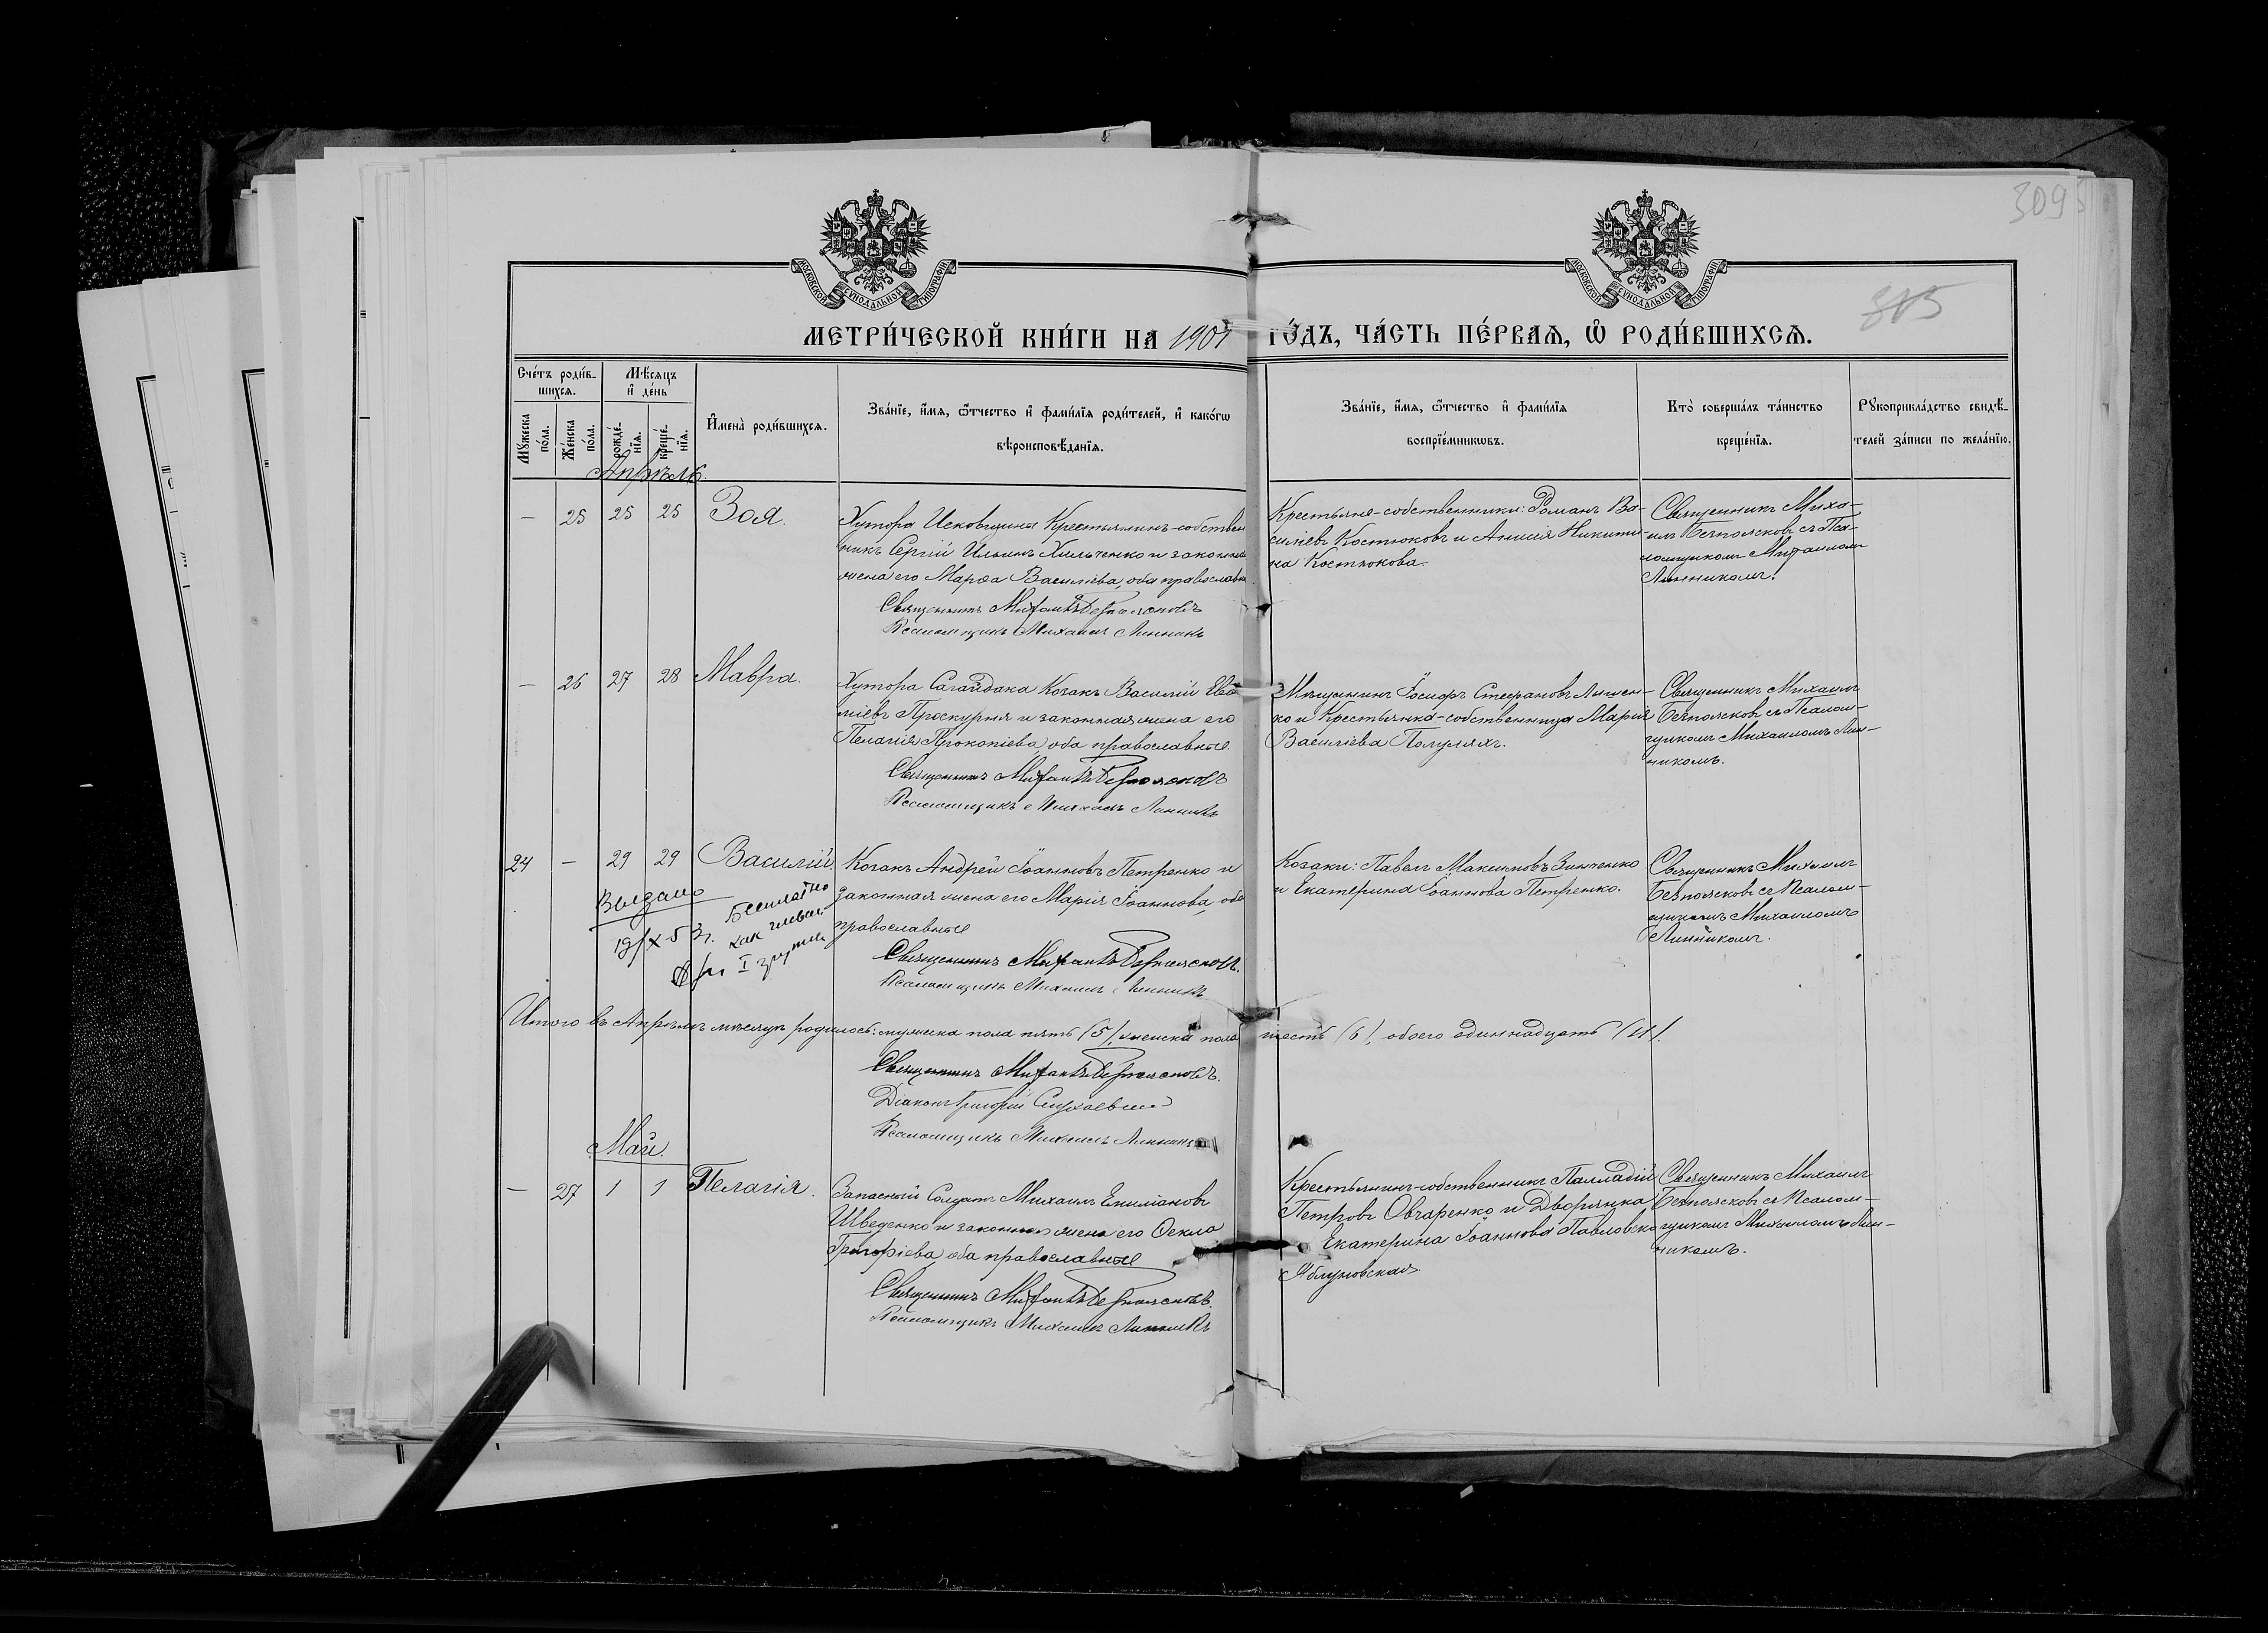 3095
МОСКОВСКОЙ СѴНОДАЛЬНОЙ ТИПОГРАФІИ
МОСКОВСКОЙ СѴНОДАЛЬНОЙ ТИПОГРАФІИ
305
МЕТРИ́ЧЕСКОЙ КНИ́ГИ НА 1901 ГО́ДЪ, ЧА́СТЬ ПЕ́РВАѦ, Ѡ҆ РОДИ́ВШИХСѦ.
Сче́тъ роди́в-
шихсѧ.
Мѣ́сѧцъ
и҆ де́нь
Мꙋ́жеска
по́ла.
Же́нска
по́ла.
рожде́-
нїѧ.
креще́-
нїѧ.
И҆мена̀ роди́вшихсѧ.
Зва́нїе, и҆́мѧ, ѻ҆́тчество и҆ фами́лїѧ роди́телей, и҆ како́гѡ
вѣроисповѣ́данїѧ.
Зва́нїе, и҆́мѧ, ѻ҆́тчество и҆ фами́лїѧ
воспрїе́мникѡвъ.
Кто̀ соверша́лъ та́инство
креще́нїѧ.
Рꙋкоприкла́дство свидѣ́-
телей за́писи по жела́нїю.
Апрѣль.
— 25 25 25 Зоя.
Хутора Исковщины Крестьянинъ-собствен
никъ Сергій Ильинъ Хильченко и законная
жена его Марѳа Василіева, оба православн
Священникъ Михаилъ Безпоясковъ
Псаломщикъ Михаилъ Линникъ
Крестьяне-собственники: Романъ Ва-
силіевъ Костюковъ и Анисія Никити-
на Костюкова.
Священникъ Миха-
илъ Безпоясковъ съ Пса-
ломщикомъ Михаиломъ
Линникомъ.
— 26 27 28 Мавра.
Хутора Сагайдака Козакъ Василій Евѳ
міевъ Проскурня и законная жена его
Пелагія Прокопіева, оба православные.
Священникъ Михаилъ Безпоясковъ
Псаломщикъ Михаилъ Линникъ
Мѣщанинъ Іосифъ Стефановъ Ляшен-
ко и Крестьянка-собственница Марія
Василіева Полуляхъ.
Священникъ Михаилъ
Безпоясковъ съ Псалом-
щикомъ Михаиломъ Лин-
никомъ.
24 — 29 29 Василій.
Козакъ Андрей Іоанновъ Петренко и
законная жена его Марія Іоаннова, оба
православные
Священникъ Михаилъ Безпоясковъ.
Псаломщикъ Михаилъ Линникъ
Козаки: Павелъ Максимовъ Зинченко
и Екатерина Іоаннова Петренко.
Священникъ Михаилъ
Безпоясковъ съ Псалом-
щикомъ Михаиломъ
Линникомъ.
Выдано
Бесплатно
как члену
I группы
Итого въ Апрѣлѣ мѣсяцѣ родилось: мужеска пола пять (5), женска пола шесть (6), обоего одиннадцать (11).
Священникъ Михаилъ Безпоясковъ.
Діаконъ Григорій
Псаломщикъ Михаилъ Линникъ
Май.
— 27 1 1 Пелагія.
Запасный Солдатъ Михаилъ Емиліановъ
Шведенко и законная жена его Ѳекла
Григоріева, оба православные
Священникъ Михаилъ Безпоясковъ.
Псаломщикъ Михаилъ Линникъ
Крестьянинъ-собственникъ Палладій
Петровъ Овчаренко и Дворянка
Екатерина Іоаннова Павловско
Яблуновская.
Священникъ Михаилъ
Безпоясковъ съ Псалом-
щикомъ Михаиломъ Лин-
никомъ.